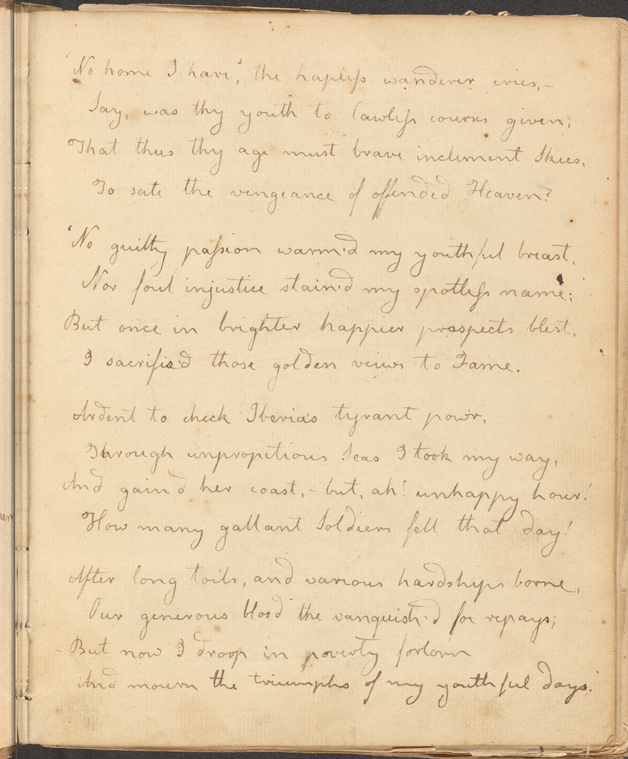 'No home I have', the hapless wanderer cries,-
Say, was thy youth to lawless courses given;
That thus thy age must brave inclement Skies,
To sate the vengeance of offended Heaven?
'No guilty passion warm'd my youthful breast,
Nor foul injustice stain'd my spotless name;
But once in brighter happier prospects blest,
I sacrifis'd those golden veiws to Fame.
Ardent to check Iberia's tyrant pow'r,
Through unpropitious Seas I took my way,
And gain'd her coast,- but, ah! unhappy hour!
How many gallant Soldiers fell that day!
After long toils, and various hardships borne,
Our generous blood the vanquish'd foe repays;
- But now I droop in poverty forlorn
And mourn the triumphs of my youthful days.'